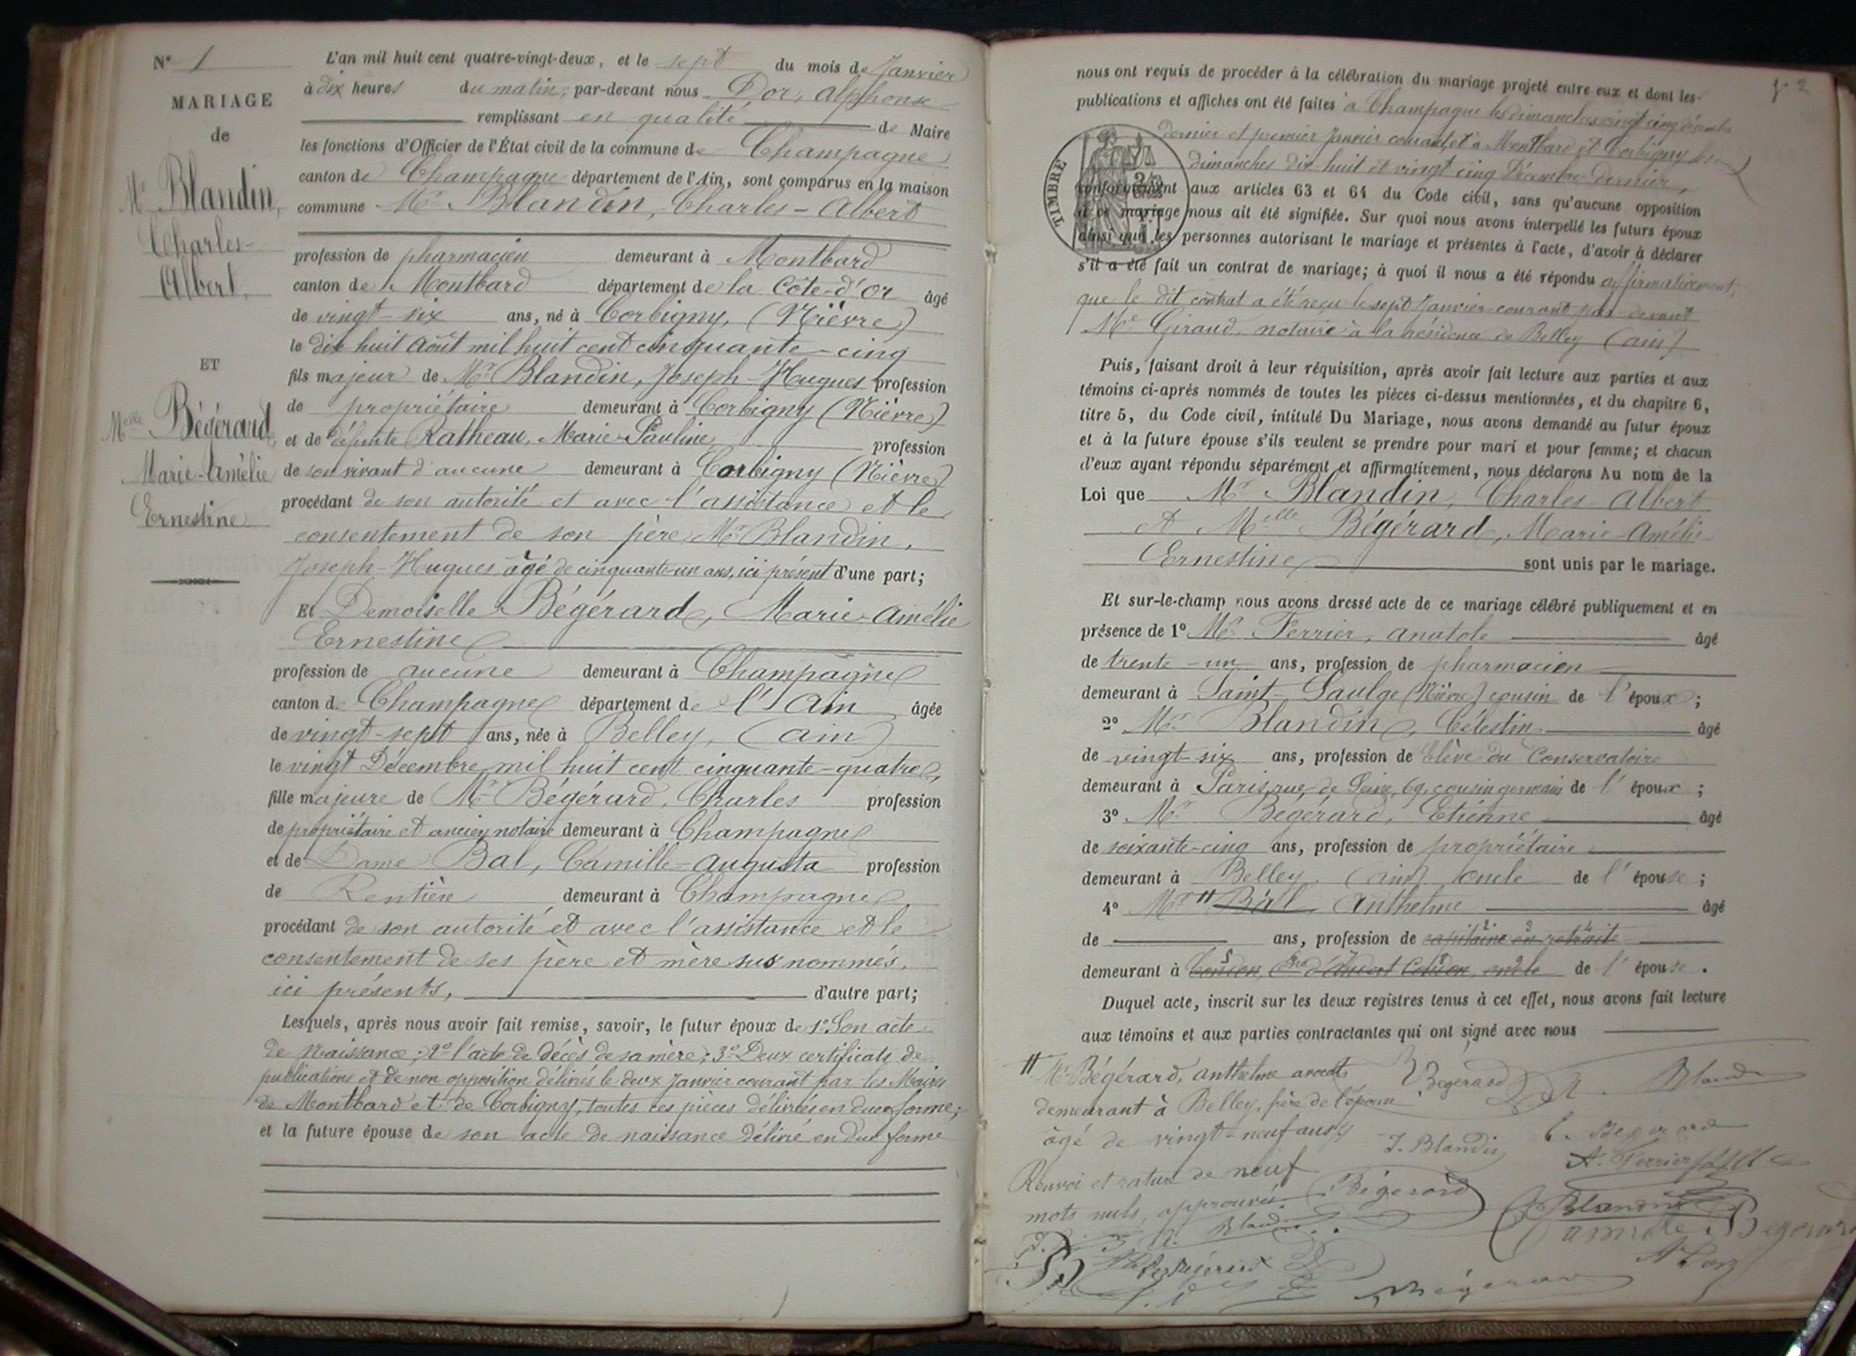 N° 1
MARIAGE
de
Mr Blandin,
Charles-
Albert.
ET
Melle Bégérard,
Marie-Amélie
Ernestine
L'an mil huit cent quatre-vingt-deux, et le sept du mois de Janvier
à dix heures du matin, par-devant nous Dor, Alphonse
remplissant en qualité de Maire
les fonctions d'Officier de l'État civil de la commune de Champagne
canton de Champagne département de l'Ain, sont comparus en la maison
commune Mr Blandin, Charles-Albert
profession de pharmacien demeurant à Montbard
canton de Montbard département de la Côte-d'or âgé
de vingt-six ans, né à Corbigny, (Nièvre)
le dix huit Août mil huit cent cinquante-cinq
fils majeur de Mr Blandin, Joseph-Hugues profession
de propriétaire demeurant à Corbigny (Nièvre)
et de défunte Ratheau, Marie-Pauline, profession
de son vivant d'aucune demeurant à Corbigny (Nièvre)
procédant de son autorité et avec l'assistance et le
consentement de son père, Mr Blandin,
Joseph-Hugues, âgé de cinquante-un ans, ici présent d'une part;
Et Demoiselle Bégérard, Marie-Amélie
Ernestine
profession de aucune demeurant à Champagne
canton de Champagne département de l'Ain âgée
de vingt-sept ans, née à Belley, (Ain)
le vingt Décembre mil huit cent cinquante-quatre,
fille majeure de Mr Bégérard, Charles profession
de propriétaire et ancien notaire demeurant à Champagne
et de Dame Bal, Camille-Augusta profession
de Rentière demeurant à Champagne
procédant de son autorité et avec l'assistance et le
consentement de ses père et mère sus nommés,
ici présents, d'autre part;
Lesquels, après nous avoir fait remise, savoir, le futur époux de 1° Son acte
de naissance; 2° l'acte de décès de sa mère; 3° Deux certificats de
publications et de non opposition délivrés le deux Janvier courant par les Maires
de Montbard et de Corbigny, toutes ces pièces délivrées en due forme;
et la future épouse de son acte de naissance délivré en due forme
f. 2
nous ont requis de procéder à la célébration du mariage projeté entre eux et dont les
publications et affiches ont été faites à Champagne les dimanches vingt cinq décembre
dernier et premier Janvier courant, et à Montbard et Corbigny les
dimanches dix huit et vingt cinq Décembre dernier,
TIMBRE
conformément aux articles 63 et 64 du Code civil, sans qu'aucune opposition
à ce mariage nous ait été signifiée. Sur quoi nous avons interpellé les futurs époux
ainsi que les personnes autorisant le mariage et présentes à l'acte, d'avoir à déclarer
s'il a été fait un contrat de mariage; à quoi il nous a été répondu affirmativement,
que le dit contrat a été reçu le sept Janvier courant par devant
Me Giraud, notaire à la résidence de Belley (Ain)
Puis, faisant droit à leur réquisition, après avoir fait lecture aux parties et aux
témoins ci-après nommés de toutes les pièces ci-dessus mentionnées, et du chapitre 6,
titre 5, du Code civil, intitulé Du Mariage, nous avons demandé au futur époux
et à la future épouse s'ils veulent se prendre pour mari et pour femme; et chacun
d'eux ayant répondu séparément et affirmativement, nous déclarons Au nom de la
Loi que Mr Blandin, Charles-Albert
et Melle Bégérard, Marie-Amélie
Ernestine sont unis par le mariage.
Et sur-le-champ nous avons dressé acte de ce mariage célébré publiquement et en
présence de 1° Mr Ferrier, Anatole âgé
de trente-un ans, profession de pharmacien
demeurant à Saint-Saulge (Nièvre) cousin de l'époux;
2° Mr Blandin, Célestin âgé
de vingt-six ans, profession de Elève du Conservatoire
demeurant à Paris, rue de Seine, 69, cousin germain de l'époux;
3° Mr Bégérard, Etienne âgé
de soixante-cinq ans, profession de propriétaire
demeurant à Belley (Ain) oncle de l'épouse;
4° Mr # Bal Anthelme âgé
de ans, profession de capitaine en retraite
demeurant à de l'épouse.
Duquel acte, inscrit sur les deux registres tenus à cet effet, nous avons fait lecture
aux témoins et aux parties contractantes qui ont signé avec nous
# Mr Bégérard, Anthelme avocat
demeurant à Belley, frère de l'épouse
âgé de vingt-neuf ans
Renvoi et rature de neuf
mots nuls, approuvés.
Bégérard
Blandin
J. Blandin
C. Bégérard
A. Ferrier
Bégérard
C. Blandin
Amélie Bégérard
A. Blandin
A. Dor
Bégérard